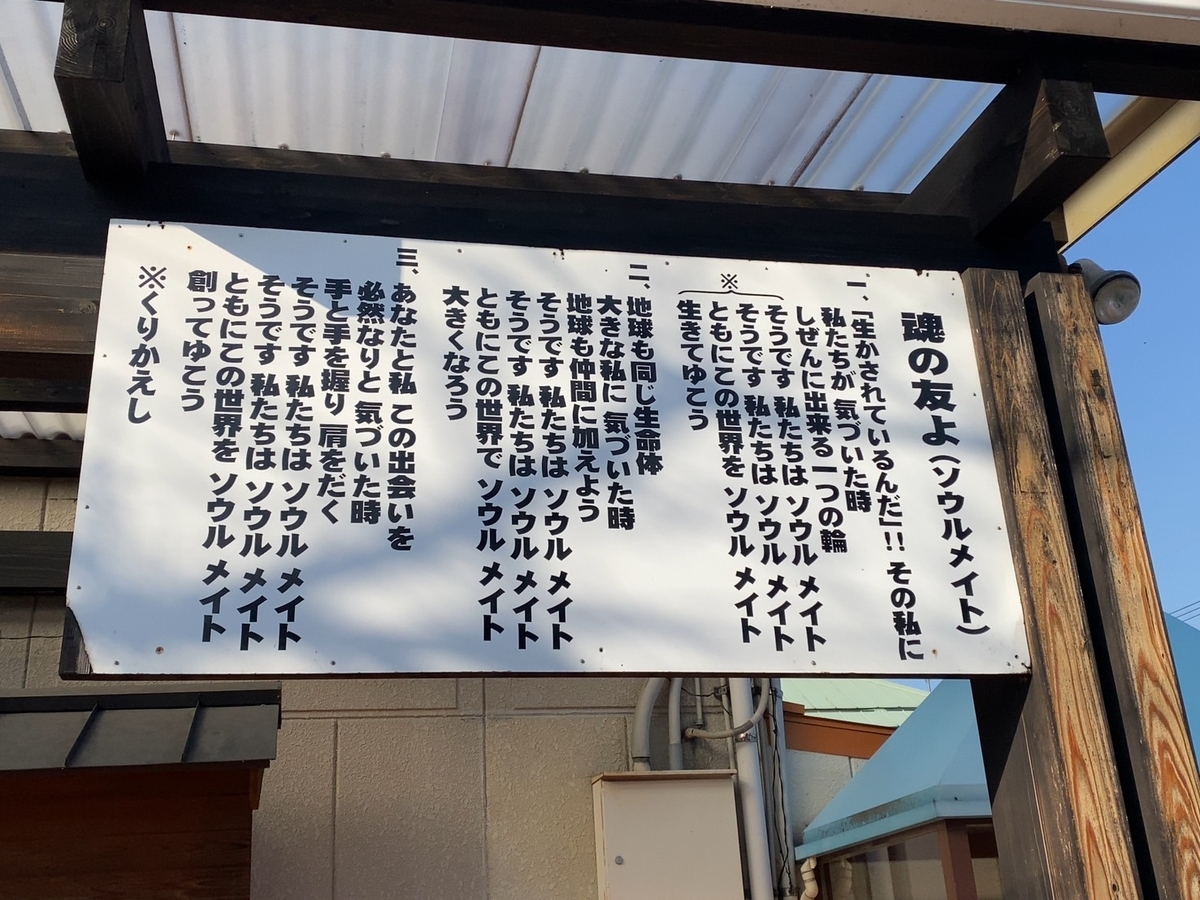 魂の友よ(ソウルメイト)
一、「生かされているんだ」!! その私に
私たちが 気づいた時
しぜんに出来る一つの輪
そうです 私たちは ソウル メイト
※
そうです 私たちは ソウル メイト
ともにこの世界を ソウル メイト
生きてゆこう
二、地球も同じ生命体
大きな私に 気づいた時
地球も仲間に加えよう
そうです 私たちは ソウル メイト
そうです 私たちは ソウル メイト
ともにこの世界で ソウル メイト
大きくなろう
三、あなたと私 この出会いを
必然なりと 気づいた時
手と手を握り 肩をだく
そうです 私たちは ソウル メイト
そうです 私たちは ソウル メイト
ともにこの世界を ソウル メイト
創ってゆこう
※くりかえし